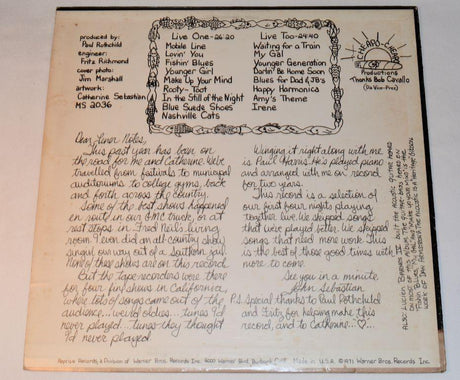 produced by:
Paul Rothchild
engineer:
Fritz Richmond
cover photo:
Jim Marshall
artwork:
Catherine Sebastian
MS 2036
Live One-26:20
Mobile Line
Lovin' You
Fishin' Blues
Younger Girl
Make Up Your Mind
Rooty-Toot
In the Still of the Night
Blue Suede Shoes
Nashville Cats
Live Too-24:40
Waiting for a Train
My Gal
Younger Generation
Darlin' Be Home Soon
Blues for Dad & J.B's
Happy Harmonica
Amy's Theme
Irene
CHEAPO-CHEAPO
Productions
Thanks Bob Cavallo
(Da Vice-Prez)
Dear Liner Notes,
This past year has been on
the road for me and Catherine. We've
travelled from festivals to municipal
auditoriums to college gyms, back
and forth across the country.
Some of the best shows happened
en route in our GMC truck, or at
rest stops in Fred Neil's living
room. I even did an all-country show,
singin' our way out of a Southern jail.
None of these shows are on this record.
But the tape recorders were there
for four fun shows in California,
where lots of songs came out of the
audience... weird oldies... tunes I'd
never played... tunes they thought
I'd never played.
Winging it right along with me
is Paul Harris. He's played piano
and arranged with me on record
for two years.
This record is a selection of
our first four nights playing
together live. We skipped songs
that we've played better. We skipped
songs that need more work. This is
the best of those good times with
more to come.
See you in a minute,
John Sebastian
P.S. Special thanks to Paul Rothchild
and Fritz, for helping make this
record, and to Catherine...♡...
Reprise Records, a Division of Warner Bros. Records Inc. 4000 Warner Blvd., Burbank, Calif. Made in U.S.A. © 1971 Warner Bros. Records Inc.